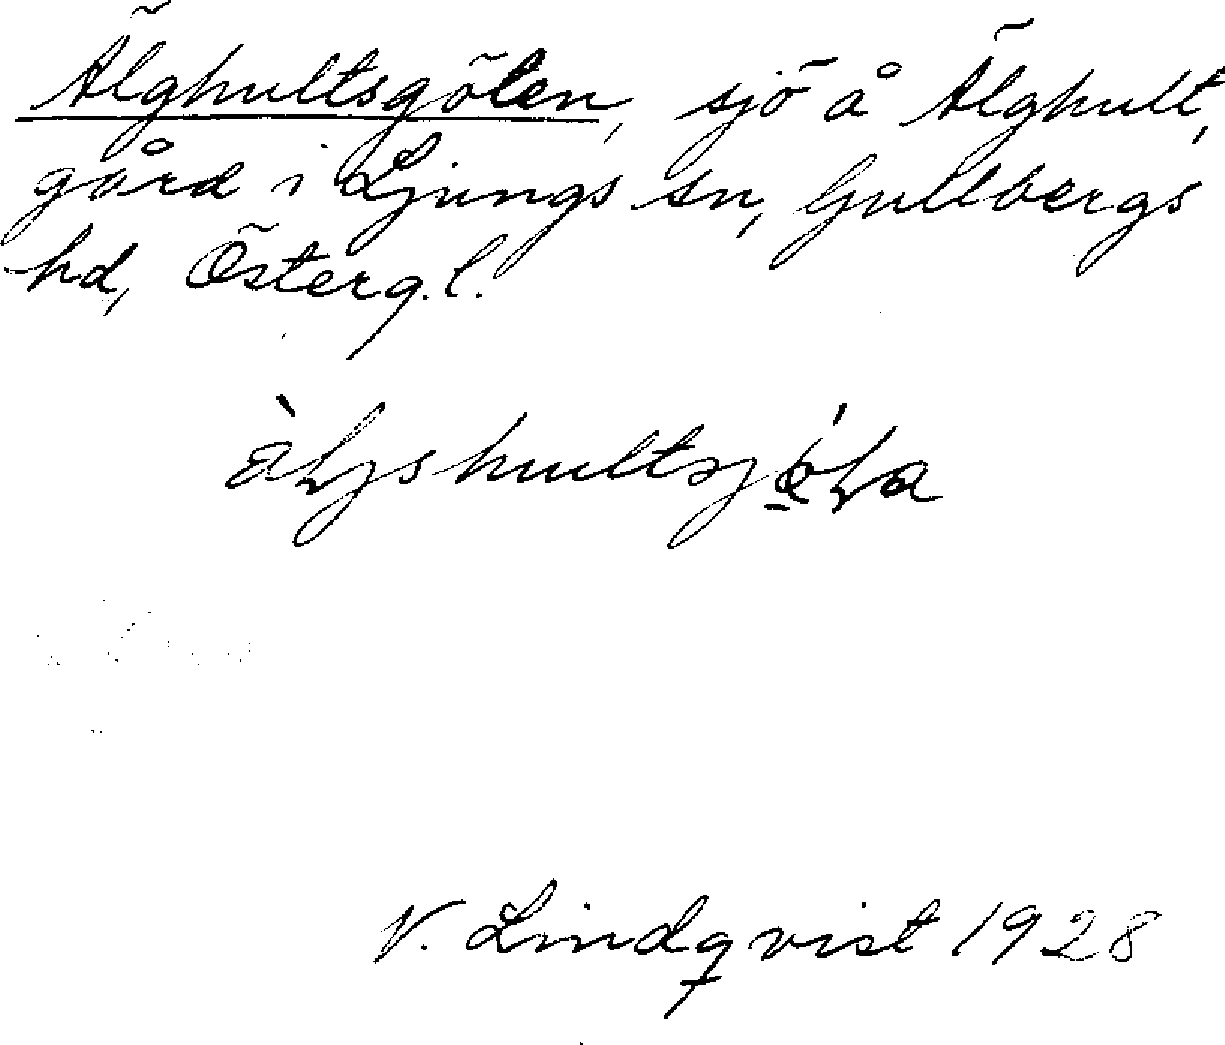 Älghultsgölen, sjö å Älghult,
gård i Ljungs sn, Gullbergs
hd, Österg.l.
V. Lindqvist 1928